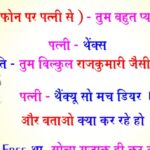 फोन पर पत्नी से ) - तुम बहुत
पत्नी - थेंक्स
तुम बिल्कुल राजकुमारी जैसी
पत्नी - थैंक्यू सो मच डियर
और बताओ क्या कर रहे हो